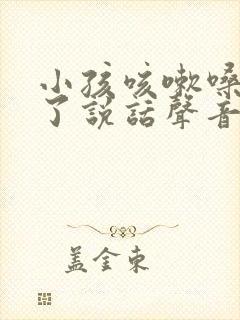 小孩咳嗽嗓
了説話聲音
蓋金東